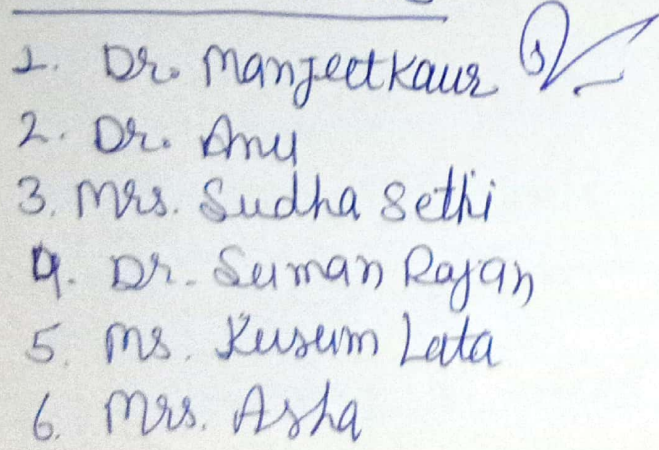 1. Dr. Manjeet Kaur
2. Dr. Anu
3. Mrs. Sudha Sethi
4. Dr. Suman Rajan
5. Ms. Kusum Lata
6. Mrs. Asha